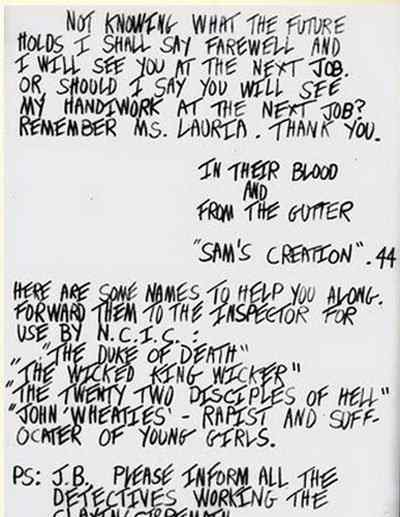 NOT KNOWING WHAT THE FUTURE
HOLDS I SHALL SAY FAREWELL AND
I WILL SEE YOU AT THE NEXT JOB.
OR, SHOULD I SAY YOU WILL SEE
MY HANDIWORK AT THE NEXT JOB?
REMEMBER MS. LAURIA. THANK YOU.
IN THEIR BLOOD
AND
FROM THE GUTTER
"SAM'S CREATION". 44
HERE ARE SOME NAMES TO HELP YOU ALONG.
FORWARD THEM TO THE INSPECTOR FOR
USE BY N.C.I.C.:
"THE DUKE OF DEATH"
"THE WICKED KING WICKER"
"THE TWENTY TWO DISCIPLES OF HELL"
"JOHN 'WHEATIES' - RAPIST AND SUFF-
OCATER OF YOUNG GIRLS.
PS: J.B. PLEASE INFORM ALL THE
DETECTIVES WORKING THE